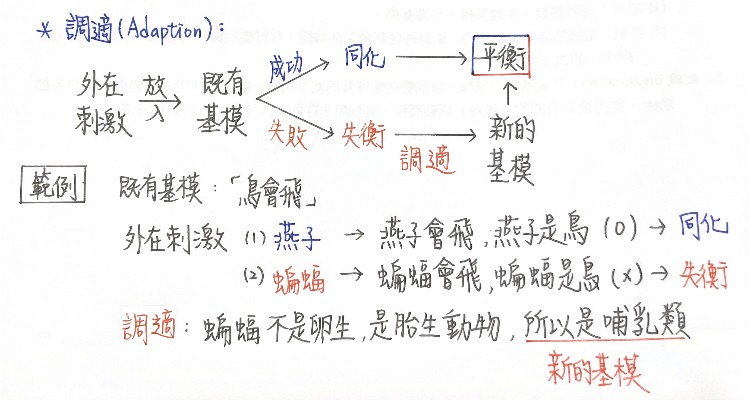 * 調適(Adaption):
外在刺激 放入→ 既有基模 成功→ 同化 → 平衡
失敗→ 失衡 調適→ 新的基模
範例 既有基模:「鳥會飛」
外在刺激 (1) 燕子 → 燕子會飛,燕子是鳥 (O) → 同化
(2) 蝙蝠 → 蝙蝠會飛,蝙蝠是鳥 (X) → 失衡
調適: 蝙蝠不是卵生,是胎生動物,所以是哺乳類
新的基模